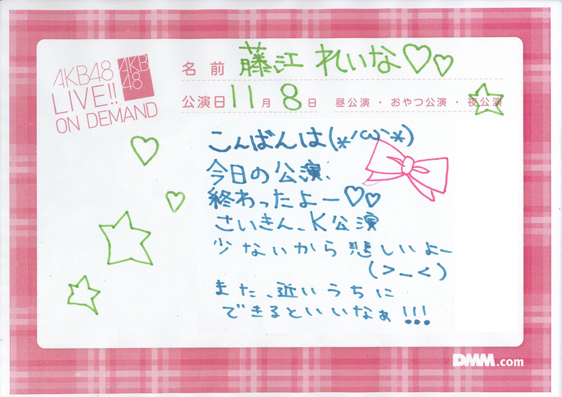 AKB48
LIVE!!
ON DEMAND
AKB
48
名前 藤江 れいな♡♡
公演日 11月8日 昼公演・おやつ公演・夜公演
こんばんは(*´ω`*)
今日の公演、
終わったよー♡♡
さいきん、K公演
少ないから悲しいよー
(>_<)
また、近いうちに
できるといいなぁ!!!
DMM.com